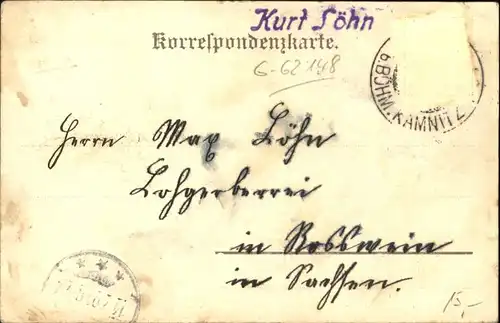 Kurt Löhn
Korrespondenzkarte.
G-62148
BÖHM. KAMNITZ
Herrn Max Löhn
Lohgerberrei
in Rosswein
in Sachsen.
15,-